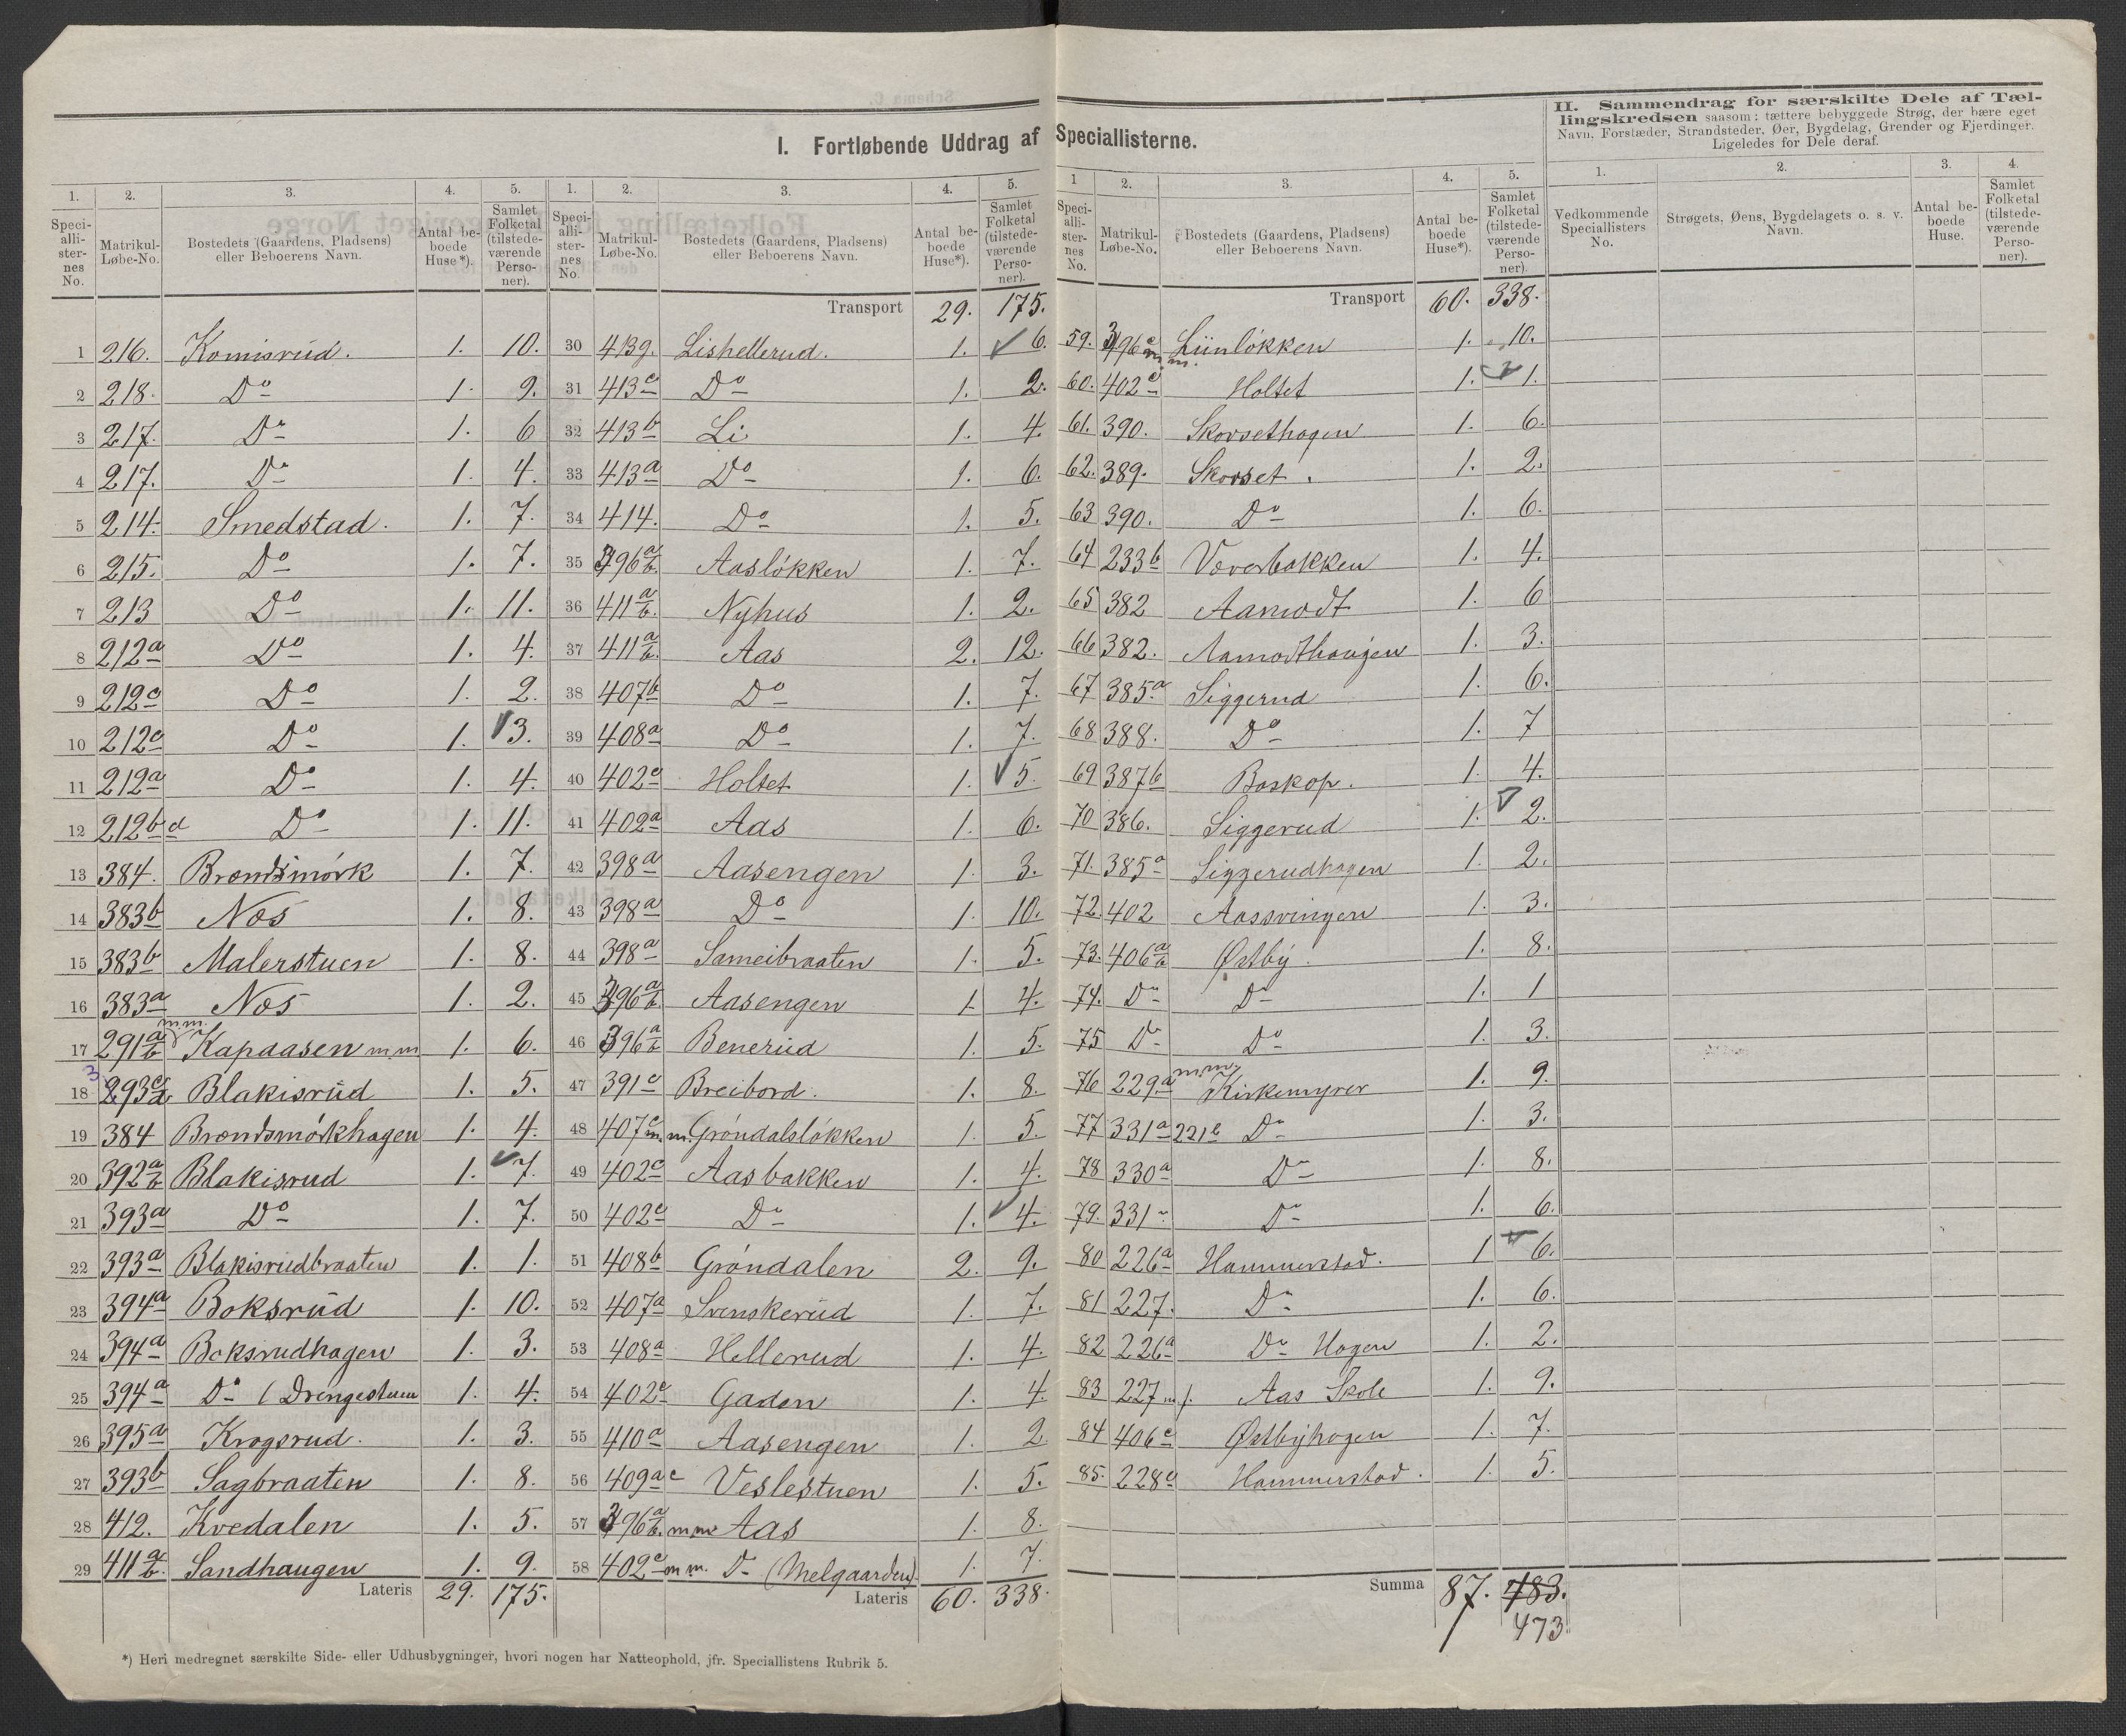 I. Fortløbende Uddrag af Speciallisterne.
II. Sammendrag for særskilte Dele af Tæl-
lingskredsen saasom: tættere bebyggede Strøg, der bære eget
Navn, Forstæder, Strandsteder, Øer, Bygdelag, Grender og Fjerdinger.
Ligeledes for Dele deraf.
1. 2. 3. 4. 5.
Speci-alli-ster-nes No. Matrikul-Løbe-No. Bostedets (Gaardens, Pladsens) eller Beboerens Navn. Antal be-boede Huse*). Samlet Folketal (tilstede-værende Perso-ner).
1 216. Komisrud. 1. 10.
2 218. Do 1. 9.
3 217. Do 1. 6
4 217. Do 1. 4.
5 214. Smedstad. 1. 7.
6 215. Do 1. 7.
7 213 Do 1. 11.
8 212a Do 1. 4.
9 212c Do 1. 2.
10 212c Do 1. 3.
11 212a Do 1. 4.
12 212b d Do 1. 11.
13 384. Brændsmørk 1. 7.
14 383b Næs 1. 8.
15 383b Malerstuen 1. 8.
16 383a Næs 1. 2.
17 291a b m.m. Kapaasen m.m 1. 6.
18 393c d Blakisrud 1. 5.
19 384 Brændsmørkhagen 1. 4.
20 392a b Blakisrud 1. 7.
21 393a Do 1. 7.
22 393a Blakisrudbraaten 1. 1.
23 394a Boksrud 1. 10.
24 394a Boksrudhagen 1. 3.
25 394a Do (Drengestuen 1. 4.
26 395a Krogsrud. 1. 3.
27 393b Sagbraaten 1. 8.
28 412. Kvedalen 1. 5.
29 411a b. Sandhaugen 1. 9.
Lateris 29. 175.
1. 2. 3. 4. 5.
Speci-alli-ster-nes No. Matrikul-Løbe-No. Bostedets (Gaardens, Pladsens) eller Beboerens Navn. Antal be-boede Huse*). Samlet Folketal (tilstede-værende Perso-ner).
Transport 29. 175.
30 413g. Lishellerud. 1. 6.
31 413c Do 1. 2.
32 413b Li 1. 4.
33 413a Do 1. 6.
34 414. Do 1. 5.
35 396a b. Aasløkken 1. 7.
36 411a b. Nyhus 1. 2.
37 411a b. Aas 2. 12.
38 407b Do 1. 7.
39 408a Do 1. 7.
40 402c Holtet 1. 5.
41 402a Aas 1. 6.
42 398a Aasengen 1. 3.
43 398a Do 1. 10.
44 398a Sameibraaten 1. 5.
45 396a b. Aasengen 1. 4.
46 396a b Benerud 1. 5.
47 391c Breibord. 1. 8.
48 407c m.m. Grøndalsløkken 1. 5.
49 402c Aasbakken 1. 4.
50 402c Do 1. 4.
51 408b Grøndalen 2. 9.
52 407a Svenskerud 1. 7.
53 408a Hellerud 1. 4.
54 402c Gaden 1. 4.
55 410a Aasengen 1. 2
56 409a c Veslestuen 1. 5.
57 396a b. m m Aas 1. 8.
58 402c m m. Do (Melgaarden). 1. 7.
Lateris 60. 338.
1 2. 3. 4. 5.
Speci-alli-ster-nes No. Matrikul-Løbe-No. Bostedets (Gaardens, Pladsens) eller Beboerens Navn. Antal be-boede Huse*). Samlet Folketal (tilstede-værende Perso-ner).
Transport 60. 338.
59. 396c m.m. Liinløkken 1. 10.
60. 402c Holtet 1. 1.
61. 390. Skovsethagen 1. 6.
62. 389. Skovset. 1. 2.
63 390. Do 1. 6.
64 233b Væverbakken 1. 4.
65 382 Aamodt 1. 6
66 382. Aamodthaugen 1. 3.
67 385.a Siggerud 1. 6.
68 388. Do 1. 7
69 387b Boskop. 1. 4.
70 386. Siggerud 1. 2.
71. 385a Siggerudhagen 1. 2.
72. 402 Aassvingen 1. 3.
73. 406a b Østby. 1. 8.
74. Do Do 1. 1
75 Do Do 1. 3.
76 229a m.m. Kirkemyrer 1. 9.
77 331a 221b Do 1. 3.
78 330a Do 1. 8.
79. 331a Do 1. 6.
80 226a Hammerstad. 1 6.
81 227. Do 1. 6.
82 226a Do Hagen 1. 2.
83 227 m.f. Aas Skole 1. 9.
84 406c Østbyhagen 1. 7.
85. 228c Hammerstad. 1. 5.
Summa 87. 483.
473.
1. 2. 3. 4.
Vedkommende Speciallisters No. Strøgets, Øens, Bygdelagets o. s. v. Navn. Antal be-boede Huse. Samlet Folketal (tilstede-værende Perso-ner).
*) Heri medregnet særskilte Side- eller Udhusbygninger, hvori nogen har Natteophold, jfr. Speciallistens Rubrik 5.